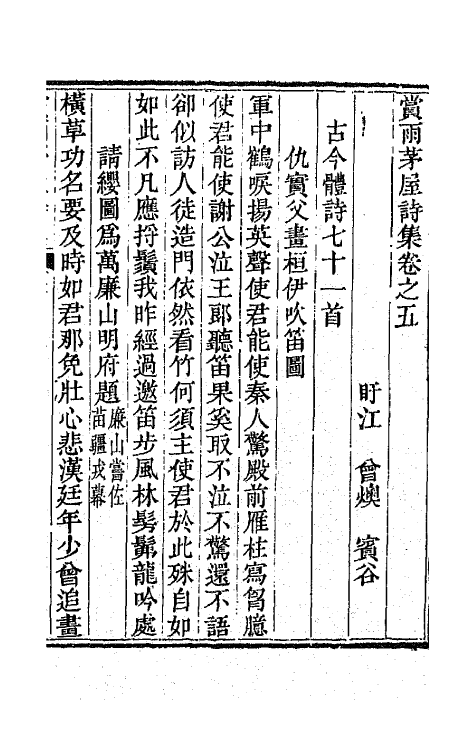 賞雨茅屋詩集卷之五
盱江　曾燠　賓谷
古今體詩七十一首
仇實父畫桓伊吹笛圖
軍中鶴唳揚英聲使君能使秦人驚殿前雁柱寫胷臆
使君能使謝公泣王郎聽笛果奚取不泣不驚還不語
卻似訪人徒造門依然看竹何須主使君於此殊自如
如此不凡應捋鬚我昨經過邀笛步風林髣髴龍吟處
請纓圖爲萬廉山明府題廉山嘗佐苗疆戎幕
橫草功名要及時如君那免壯心悲漢廷年少曾追畫